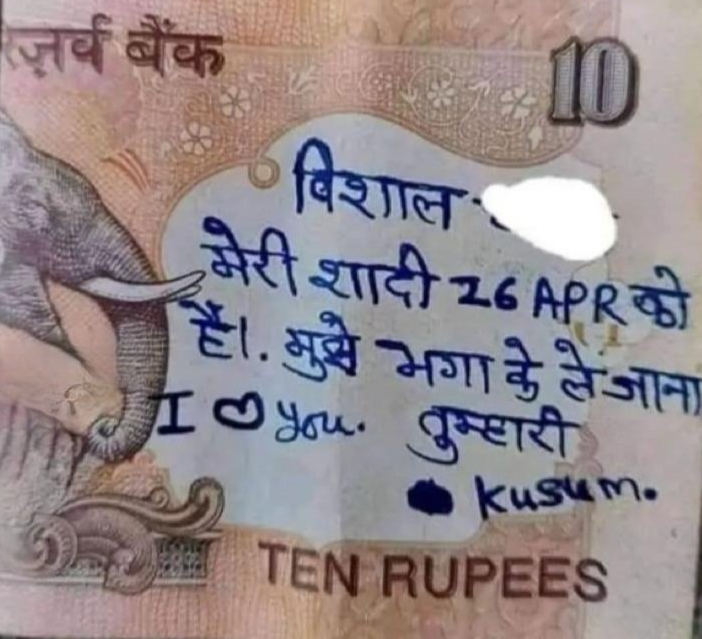 ज़र्व बैंक
10
विशाल
मेरी शादी 26 APR को
है।. मुझे भगा के ले जाना
I ♡ you. तुम्हारी
kusum.
TEN RUPEES